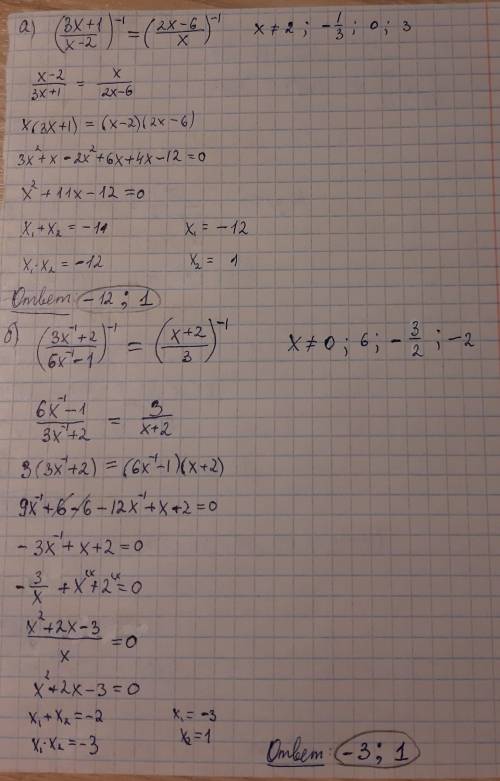 а) ((3x+1)/(x-2))⁻¹ = ((2x-6)/x)⁻¹ x ≠ 2 ; -1/3 ; 0 ; 3
(x-2)/(3x+1) = x/(2x-6)
x(3x+1) = (x-2)(2x-6)
3x²+x-2x²+6x+4x-12=0
x²+11x-12=0
x₁+x₂ = -11 x₁ = -12
x₁·x₂ = -12 x₂ = 1
Ответ: -12 ; 1
б) ((3x⁻¹+2)/(6x⁻¹-1))⁻¹ = ((x+2)/3)⁻¹ x ≠ 0 ; 6 ; -3/2 ; -2
(6x⁻¹-1)/(3x⁻¹+2) = 3/(x+2)
3(3x⁻¹+2) = (6x⁻¹-1)(x+2)
9x⁻¹+6-6-12x⁻¹+x+2=0
-3x⁻¹+x+2=0
-3/x + x⁽ˣ+2⁽ˣ=0
(x²+2x-3)/x =0
x²+2x-3=0
x₁+x₂=-2 x₁=-3
x₁·x₂=-3 x₂=1
Ответ: -3 ; 1